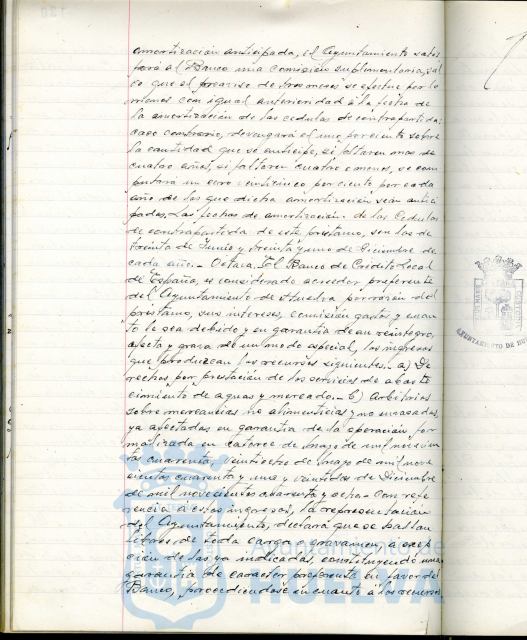 amortización anticipada, el Ayuntamiento satis
fará al Banco una comisión suplementaria, sal
vo que el preaviso de tres meses se efectue por lo
menos con igual anterioridad á la fecha de
la amortización de las cedulas de contrapartida;
caso contrario, devengará el uno por ciento sobre
la cantidad que se anticipe, si faltaren mas de
cuatro años, si faltaren cuatro o menos, se com
putará un cero veinticinco por ciento por cada
año de los que dicha amortización sean antici
padas. Las fechas de amortización de las Cedulas
de contrapartida de este préstamo, son las de
treinta de Junio y treinta y uno de Diciembre de
cada año.- Octava. El Banco de Crédito Local
de España, es considerado acreedor preferente
del Ayuntamiento de Huelva por razón del
préstamo, sus intereses, comisión gastos y cuan
to le sea debido y en garantía de su reintegro,
afecta y grava de un modo especial, los ingresos
que produzcan los recursos siguientes.- a) De
rechos por prestación de los servicios de abaste
cimiento de aguas y mercado.- b) Arbitrios
sobre mercancias no alimenticias y no envasadas,
ya afectadas en garantia de la operación for
malizada en catorce de Mayo de mil novecien
tos cuarenta, veintiocho de Mayo de mil nove
cientos cuarenta y uno y veintidos de Diciembre
de mil novecientos cuarenta y ocho.- Con refe
rencia a estos ingresos, la representación
del Ayuntamiento, declara que se hallan
libres de toda carga o gravamen, a excep
ción de las ya indicadas, constituyendo una
garantia de caracter preferente en favor del
Banco, procediendose en cuanto a los recursos
Ayuntamiento de
HUELVA
AYUNTAMIENTO DE HU